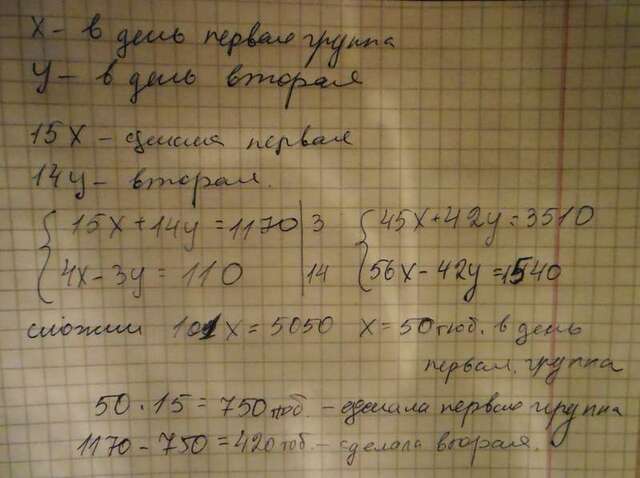 X - в день первая группа
y - в день вторая
15X - сделала первая
14y - вторая.
{ 15X + 14y = 1170 | 3 { 45X + 42y = 3510
4X - 3y = 110 | 14 56X - 42y = 1540
сложим 101X = 5050 X = 50 тюб. в день
первая группа
50 · 15 = 750 тюб. - сделала первая группа
1170 - 750 = 420 тюб. - сделала вторая.